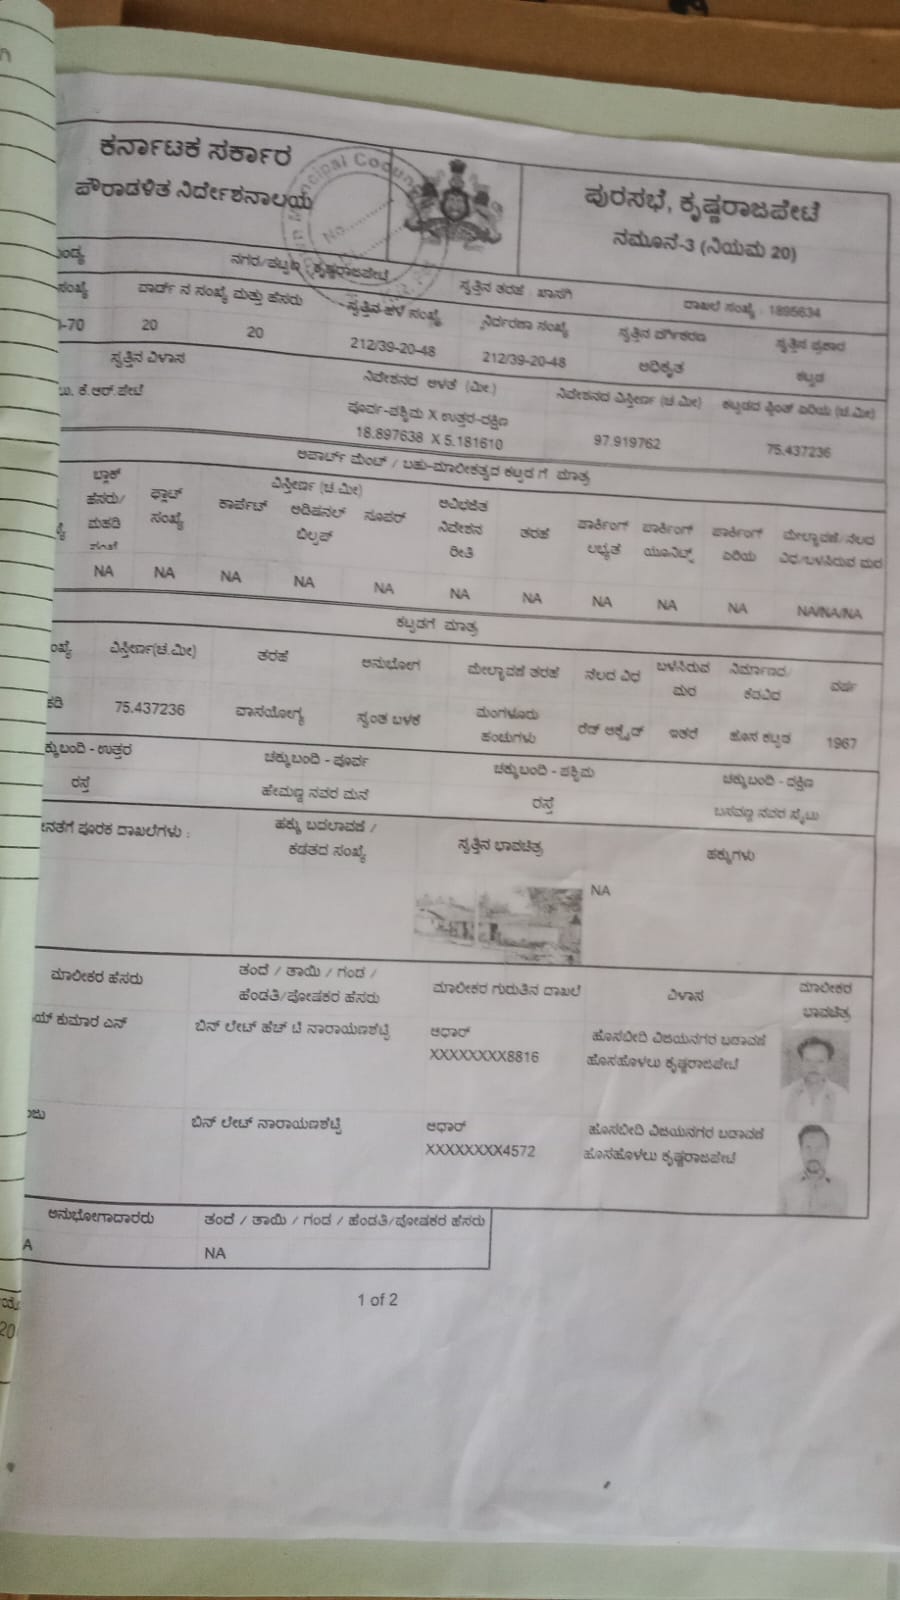 ಕರ್ನಾಟಕ ಸರ್ಕಾರ
ಪೌರಾಡಳಿತ ನಿರ್ದೇಶನಾಲಯ
ಪುರಸಭೆ, ಕೃಷ್ಣರಾಜಪೇಟೆ
ನಮೂನೆ-3 (ನಿಯಮ 20)
ನಗರ/ಪಟ್ಟಣ : ಕೃಷ್ಣರಾಜಪೇಟೆ ಸ್ವತ್ತಿನ ತರಹೆ : ಖಾಸಗಿ ದಾಖಲೆ ಸಂಖ್ಯೆ : 1895634
ಸಂಖ್ಯೆ ವಾರ್ಡ್ ನ ಸಂಖ್ಯೆ ಮತ್ತು ಹೆಸರು ಸ್ವತ್ತಿನ ಹಳೆ ಸಂಖ್ಯೆ ನಿರ್ದರಣಾ ಸಂಖ್ಯೆ ಸ್ವತ್ತಿನ ವರ್ಗೀಕರಣ ಸ್ವತ್ತಿನ ಪ್ರಕಾರ
-70 20 20 212/39-20-48 212/39-20-48 ಅಧಿಕೃತ ಕಟ್ಟಡ
ಸ್ವತ್ತಿನ ವಿಳಾಸ ನಿವೇಶನದ ಅಳತೆ (ಮೀ.) ನಿವೇಶನದ ವಿಸ್ತೀರ್ಣ (ಚ.ಮೀ) ಕಟ್ಟಡದ ಪ್ಲಿಂತ್ ಏರಿಯ (ಚ.ಮೀ)
ಕೆ.ಆರ್.ಪೇಟೆ ಪೂರ್ವ-ಪಶ್ಚಿಮ X ಉತ್ತರ-ದಕ್ಷಿಣ
18.897638 X 5.181610 97.919762 75.437236
ಅಪಾರ್ಟ್ ಮೆಂಟ್ / ಬಹು-ಮಾಲೀಕತ್ವದ ಕಟ್ಟಡ ಗೆ ಮಾತ್ರ
ಬ್ಲಾಕ್ ಹೆಸರು/ ಮಹಡಿ ಫ್ಲಾಟ್ ಸಂಖ್ಯೆ ವಿಸ್ತೀರ್ಣ (ಚ.ಮೀ) ಕಾರ್ಪೆಟ್ ಅಡಿಷನಲ್ ಬಿಲ್ಟಪ್ ಸೂಪರ್ ಅವಿಭಜಿತ ನಿವೇಶನ ರೀತಿ ತರಹೆ ಪಾರ್ಕಿಂಗ್ ಲಭ್ಯತೆ ಪಾರ್ಕಿಂಗ್ ಯೂನಿಟ್ಸ್ ಪಾರ್ಕಿಂಗ್ ಏರಿಯ ಮೇಲ್ಚಾವಣಿ/ನೆಲದ ವಿಧ/ಬಳಸಿರುವ ಮರ
NA NA NA NA NA NA NA NA NA NA NA/NA/NA
ಕಟ್ಟಡಗೆ ಮಾತ್ರ
ವಿಸ್ತೀರ್ಣ(ಚ.ಮೀ) ತರಹೆ ಅನುಭೋಗ ಮೇಲ್ಚಾವಣಿ ತರಹೆ ನೆಲದ ವಿಧ ಬಳಸಿರುವ ಮರ ನಿರ್ಮಾಣದ/ ಕೆಡವಿದ ವರ್ಷ
75.437236 ವಾಸಯೋಗ್ಯ ಸ್ವಂತ ಬಳಕೆ ಮಂಗಳೂರು ಹಂಚುಗಳು ರೆಡ್ ಆಕ್ಸೈಡ್ ಇತರೆ ಹೊಸ ಕಟ್ಟಡ 1967
ಕ್ಕುಬಂದಿ - ಉತ್ತರ ಚಕ್ಕುಬಂದಿ - ಪೂರ್ವ ಚಕ್ಕುಬಂದಿ - ಪಶ್ಚಿಮ ಚಕ್ಕುಬಂದಿ - ದಕ್ಷಿಣ
ರಸ್ತೆ ಹೇಮಣ್ಣ ನವರ ಮನೆ ರಸ್ತೆ ಬಸವಣ್ಣ ನವರ ಸೈಟು
ಪೂರಕ ದಾಖಲೆಗಳು : ಹಕ್ಕು ಬದಲಾವಣೆ / ಕಡತದ ಸಂಖ್ಯೆ ಸ್ವತ್ತಿನ ಭಾವಚಿತ್ರ ಹಕ್ಕುಗಳು
NA
ಮಾಲೀಕರ ಹೆಸರು ತಂದೆ / ತಾಯಿ / ಗಂಡ / ಹೆಂಡತಿ/ಪೋಷಕರ ಹೆಸರು ಮಾಲೀಕರ ಗುರುತಿನ ದಾಖಲೆ ವಿಳಾಸ ಮಾಲೀಕರ ಭಾವಚಿತ್ರ
ಯ್ ಕುಮಾರ ಎನ್ ಬಿನ್ ಲೇಟ್ ಹೆಚ್ ಟಿ ನಾರಾಯಣಶೆಟ್ಟಿ ಆಧಾರ್ ಹೊಸಬೀದಿ ವಿಜಯನಗರ ಬಡಾವಣೆ
XXXXXXXX8816 ಹೊಸಹೊಳಲು ಕೃಷ್ಣರಾಜಪೇಟೆ
ಬಿನ್ ಲೇಟ್ ನಾರಾಯಣಶೆಟ್ಟಿ ಆಧಾರ್ ಹೊಸಬೀದಿ ವಿಜಯನಗರ ಬಡಾವಣೆ
XXXXXXXX4572 ಹೊಸಹೊಳಲು ಕೃಷ್ಣರಾಜಪೇಟೆ
ಅನುಭೋಗದಾರರು ತಂದೆ / ತಾಯಿ / ಗಂಡ / ಹೆಂಡತಿ/ಪೋಷಕರ ಹೆಸರು
A NA
1 of 2